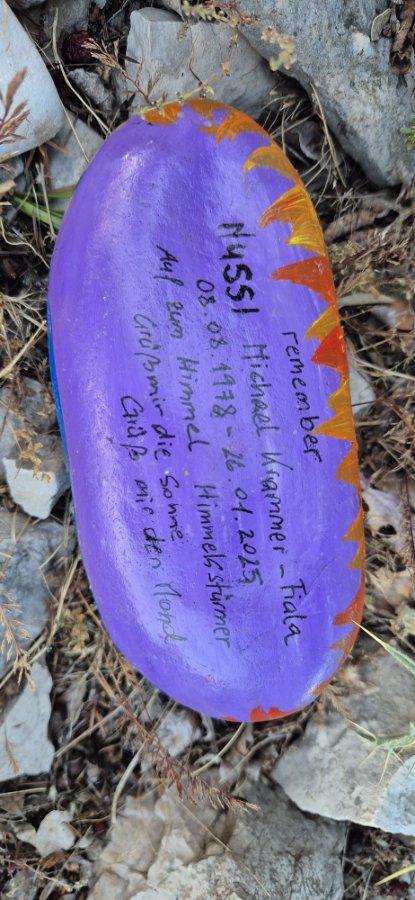 remember
NUSSI Michael Krammer-Fiala
08.08.1978 - 26.04.2025
Auf zum Himmel Himmelsstürmer
Grüß mir die Sonne
Grüß mir den Mond